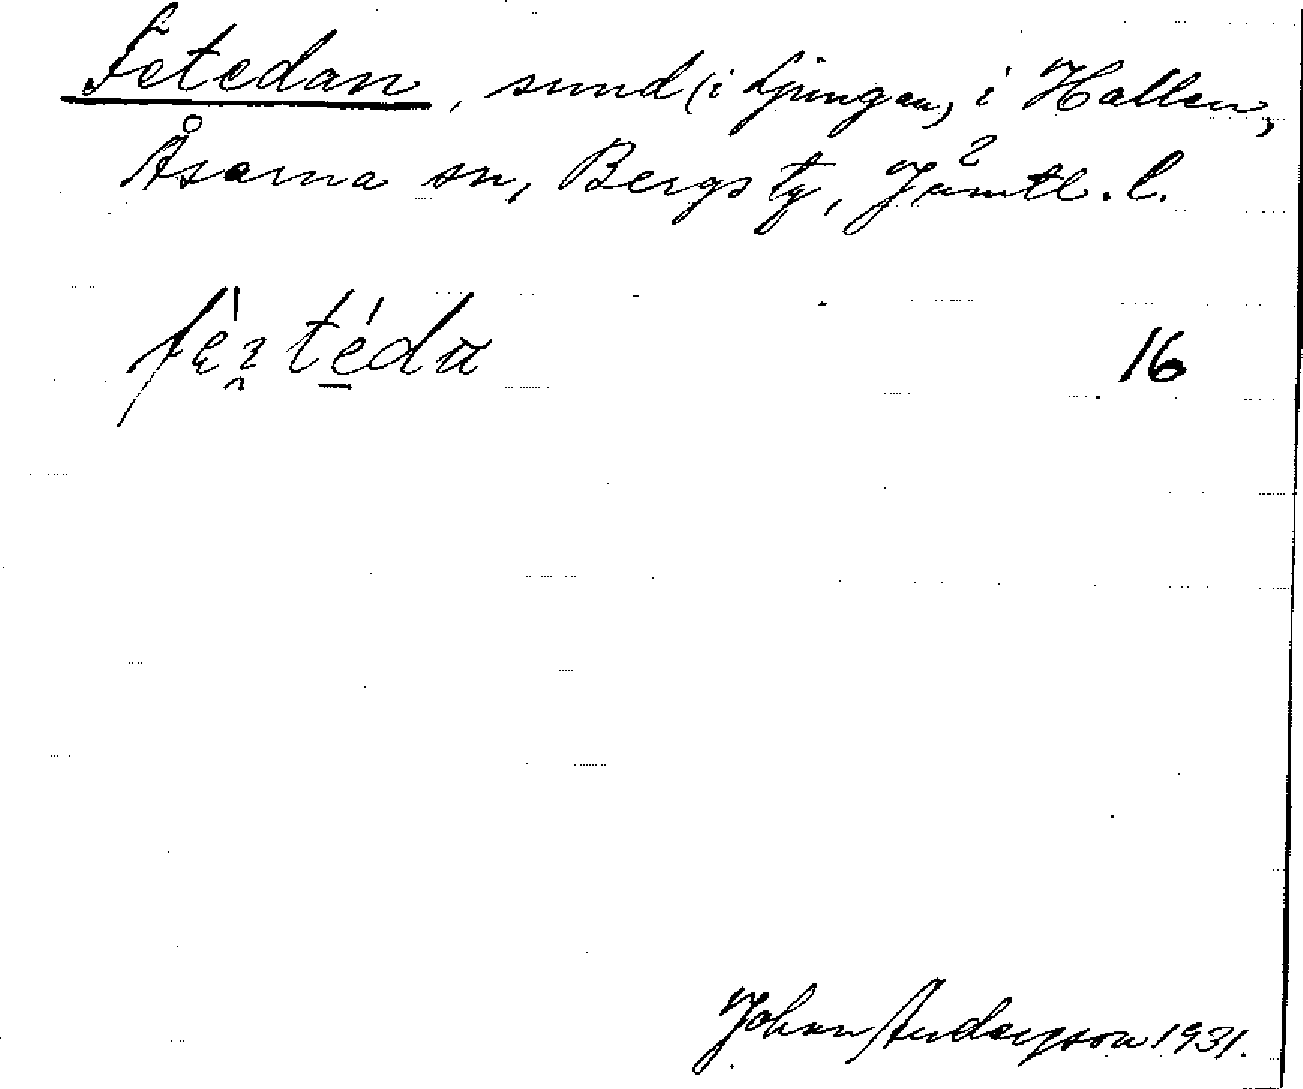 Fetedan, sund (i Ljungan) i Hallen,
Åsarna sn, Bergs tg, Jämtl. l.
16
Johan Andersson 1931.